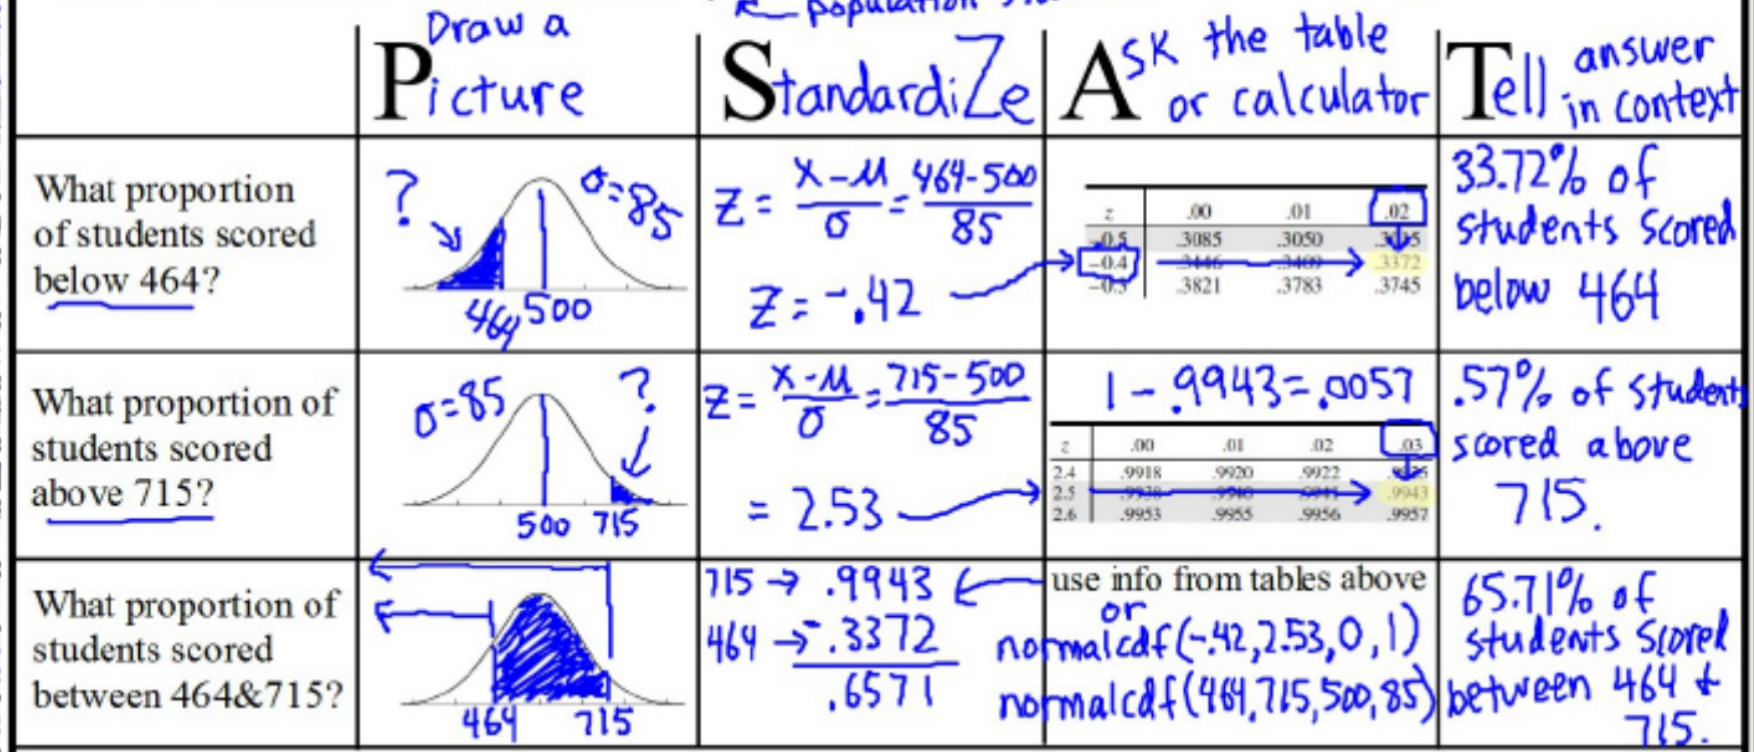 population
Draw a
Picture
StandardiZe
Ask the table
or calculator
Tell answer
in context
What proportion
of students scored
below 464?
?
σ=85
464 500
Z = X-M/σ = 464-500/85
Z = -.42
z .00 .01 .02
-0.5 .3085 .3050
-0.4 .3372
.3821 .3783 .3745
33.72% of
students scored
below 464
What proportion of
students scored
above 715?
σ=85
?
500 715
Z = X-M/σ = 715-500/85
= 2.53
1 - .9943 = .0057
z .00 .01 .02 .03
2.4 .9918 .9920 .9922
2.5 .9943
2.6 .9953 .9955 .9956 .9957
.57% of students
scored above
715.
What proportion of
students scored
between 464&715?
464 715
715 → .9943
464 → -.3372
.6571
use info from tables above
or
normalcdf(-.42,2.53,0,1)
normalcdf(464,715,500,85)
65.71% of
students scored
between 464 &
715.